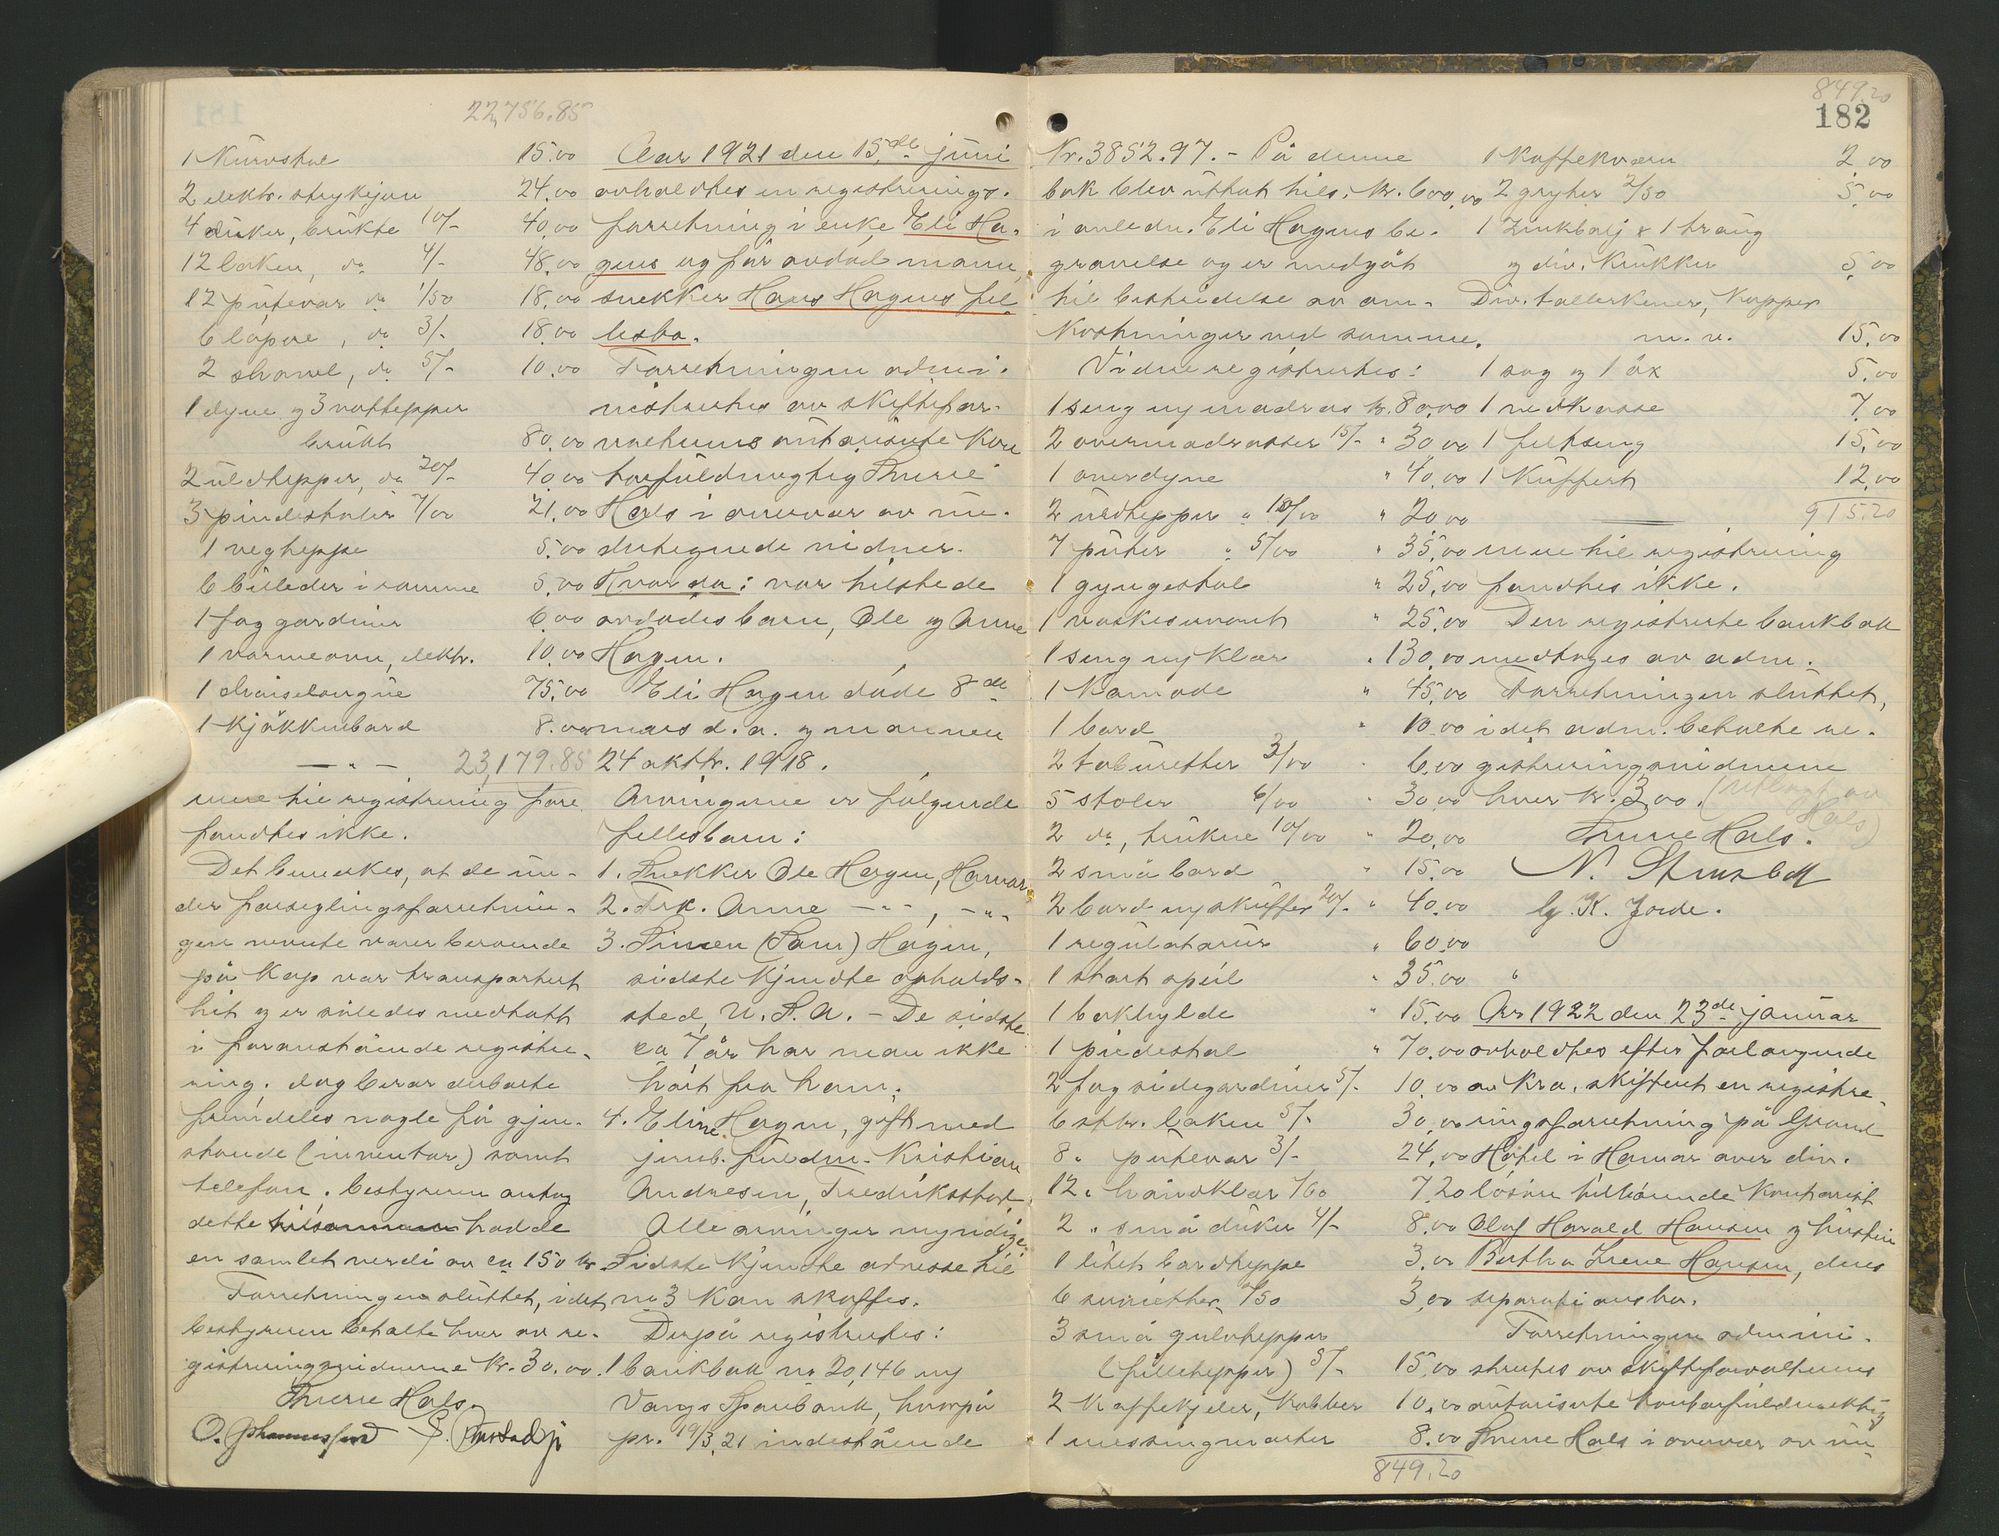 22,756.85
1 Kurvstol 15.00
2 elektr. strykejern 24.00
4 duker, brukte 10/- 40.00
12 laken, do 4/- 48.00
12 putevar do 1/50 18.00
6 do 3/- 18.00
2 do 5/- 10.00
1 dyne og 3 vattepper
brukt 80.00
2 uldtepper, do 20/- 40.00
3 pindestoler 7/00 21.00
1 vegteppe 5.00
6 billeder i ramme 5.00
1 fag gardiner 6.00
1 varmeovn, elektr. 10.00
1 chaiselongue 75.00
1 kjøkkenbord 8.00
— " — 23,179.85
mere til registrering
fandtes ikke.
Det bemerkes, at de un-
der forseglingsforretnin-
gen nevnte varer beroende
på Kap var transportert
hit og er således medtatt
i foranstående registre-
ring. dog beror derborte
fremdeles nogle få gjen-
stande (inventar) samt
telefon. bestyreren antog
dette hadde
en samlet verdi av ca 150 kr.
Forretningen sluttet, idet
bestyreren betalte hver av re-
gistreringsvidnerne kr. 30.00.
Signe Hals.
O. Johannesen
Aar 1921 den 15de juni
avholdtes en registrerings-
forretning i enke Eli Ha-
gens og før avdød mann,
snekker Hans Hagens fel-
lesbo.
Forretningen admi-
nistrertes av skiftefor-
valterens autoriserte kon-
torfuldmegtig Signe
Hals i overvær av un-
dertegnede vidner.
Hvorda: var tilstede
avdødes barn, Ole og Anne
Hagen.
Eli Hagen døde 8de
mars d. a. og mannen
24 oktbr. 1918.
Arvingerne er følgende
fellesbarn:
1. Snekker Ole Hagen, Hamar
2. Frk. Anne — " — , — " —
3. Simen (Sam) Hagen,
sidste kjendte opholds-
sted, U. S. A. - De sidste
ca 7 år har man ikke
hørt fra ham.
4. Eline Hagen, gift med
jernb. fuldm. Kristian
Andresen, Fredrikstad.
Alle arvinger myndige.
Sidste kjendte adresse til
no 3 kan skaffes.
Derpå registrertes:
1 bankbok no 20,146 og
Vangs Sparebank, hvorpå
pr. 19/3. 21 indestående
849.20
182
Kr. 3852.97. - På denne
bok blev uttat tils. kr. 600,00
i anledn. Eli Hagens be-
gravelse og er medgåt
til bestridelse av om-
kostninger ved samme.
Videre registrertes:
1 seng og madras kr. 80.00
2 overmadrasser 15/- " 30.00
1 overdyne " 40.00
2 uldtepper " 10/00 " 20.00
7 puter " 5/00 " 35.00
1 gyngestol " 25.00
1 vaskeservant " 25.00
1 seng og klær " 130.00
1 komode " 45.00
1 bord " 10.00
2 taburetter 3/00 " 6.00
5 stoler 6/00 " 30.00
2 do, trukne 10/00 " 20.00
2 små bord " 15.00
2 bord og skuffer 20/- " 40.00
1 regulatorur " 60.00
1 stort speil " 35.00
1 bokhylde " 15.00
1 piedestal " 70.00
2 fag sidegardiner 5/- 10.00
6 str. laken 5/- 30.00
8 " putevar 3/- 24.00
12 " håndklær /60 7.20
2 " små duker 4/- 8.00
1 litet bordteppe 3.00
6 servietter /50 3.00
3 små gulvtepper
(filletepper) 5/- 15.00
2 kaffekjeler, kobber 10.00
1 messingmorter 8.00
849.20
1 kaffekvern 2.00
2 gryter 2/50 5.00
1 zinkbalj & 1 traug
og div. krukker 5.00
Div. tallerkener, kopper
m. v. 15.00
1 sag og 1 øx 5.00
1 vedkasse 7.00
1 feltseng 15.00
1 kuffert 12.00
915.20
mere til registrering
fandtes ikke.
Den registrerte bankbok
medtoges av adm.
Forretningen sluttet,
idet adm. betalte re-
gistreringsvidnerne
hver kr. 3,00. (utlagt av
Hals)
Signe Hals.
N. Stensbøll
K. Jorde.
"
År 1922 den 23de januar
avholdtes efter forlangende
av Kra. skifteret en registre-
ringsforretning på Grand
Hotel i Hamar over div.
løsøre tilhørende kontorist
Olaf Harald Hansen og hustru
Bertha Irene Hansen, deres
separasjonsbo.
Forretningen admini-
strertes av skifteforvalterens
autoriserte kontorfuldmektig
Signe Hals i overvær av un-